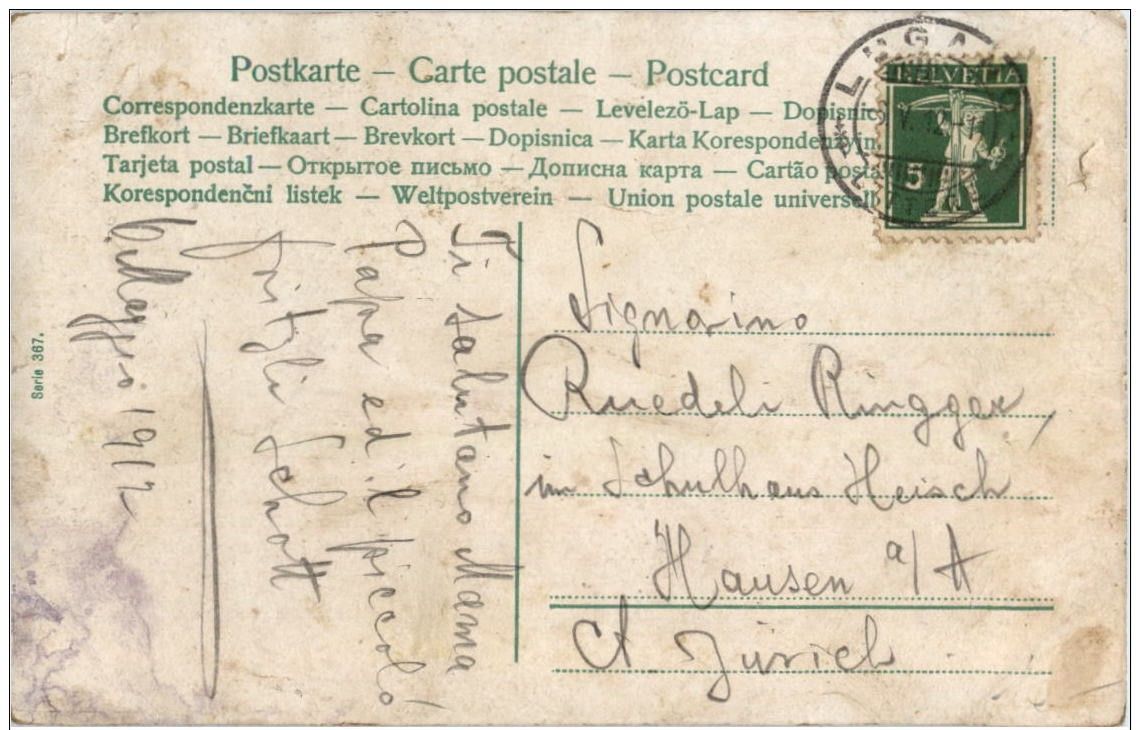 Postkarte – Carte postale – Postcard
Correspondenzkarte — Cartolina postale — Levelezö-Lap — Dopisnic
Brefkort — Briefkaart — Brevkort — Dopisnica — Karta Korespondenzyjn
Tarjeta postal — Открытое письмо — Дописна карта — Cartão posta
Korespondenčni listek — Weltpostverein — Union postale universell
LUGA
HELVETIA
V. 12
5
Ti salutano Mama
Papa ed il piccoló
Fritzli Schott
6 Maggio 1912
Signorino
Ruedeli Ringger,
im Schulhaus Heisch
Hausen a/A
Ct. Zürich
Serie 367.